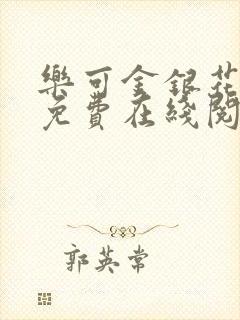 樂可金銀花
免費在綫閱
郭英常